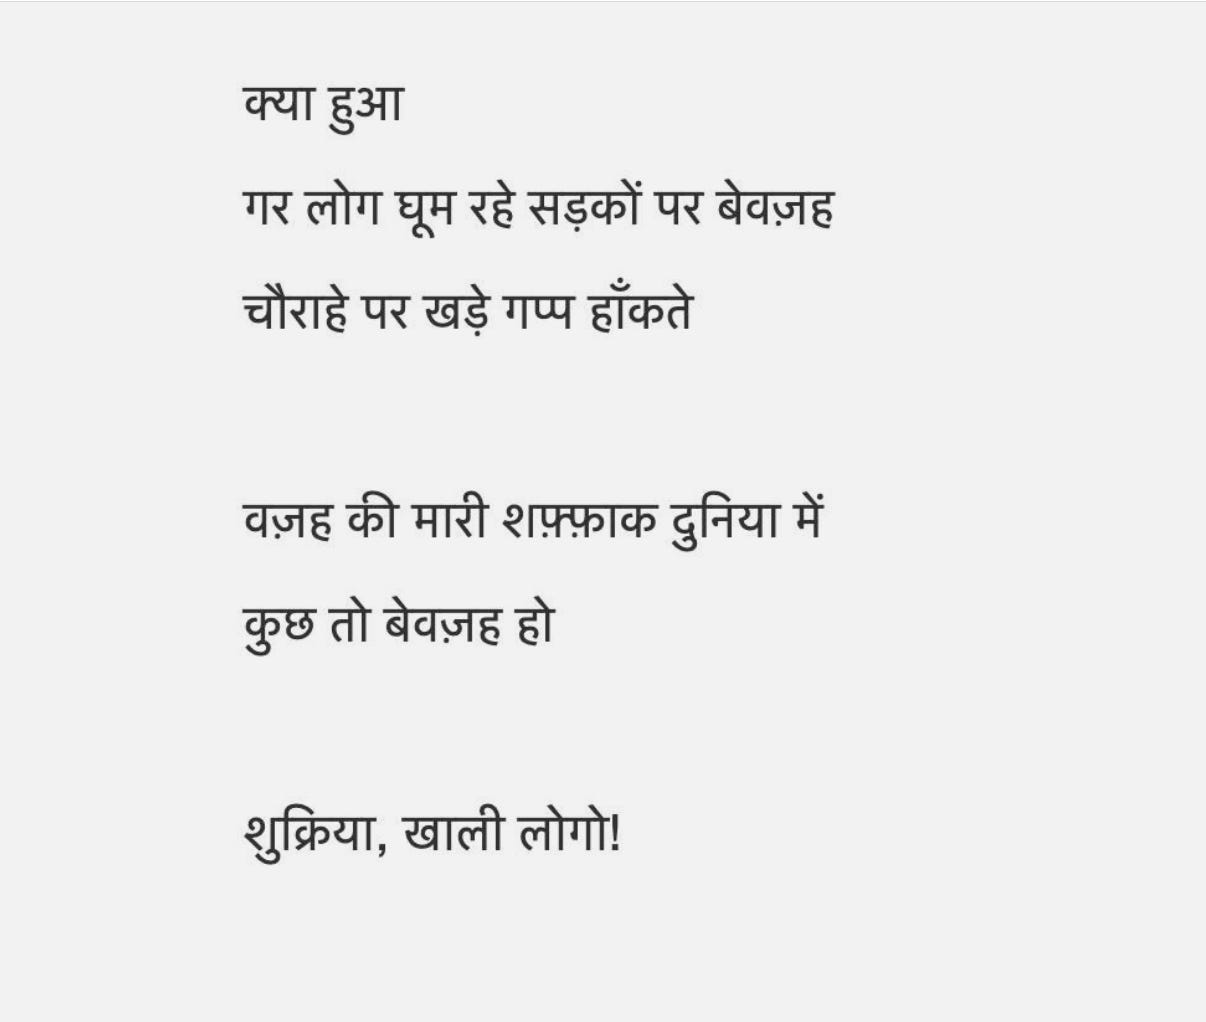 क्या हुआ
गर लोग घूम रहे सड़कों पर बेवज़ह
चौराहे पर खड़े गप्प हाँकते
वज़ह की मारी शफ़्फ़ाक दुनिया में
कुछ तो बेवज़ह हो
शुक्रिया, खाली लोगो!